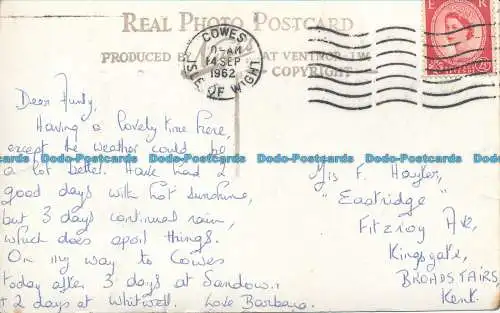 REAL PHOTO POSTCARD
PRODUCED BY AT VENTNOR, I.W.
COPYRIGHT
COWES
-AM
14 SEP
1962
ISLE OF WIGHT
E R
Dear Aunty,
Having a lovely time here,
except the weather could be
a lot better. Have had 2
good days with hot sunshine,
but 3 days continual rain,
which does spoil things.
On my way to Cowes
today after 3 days at Sandown
+ 2 days at Whitwell. Love Barbara.
Miss F. Hayler,
"Eastridge"
Fitzroy Ave,
Kingsgate,
BROADSTAIRS,
Kent.
Dodo-Postcards Dodo-Postcards Dodo-Postcards Dodo-Postcards Dodo-Postcards